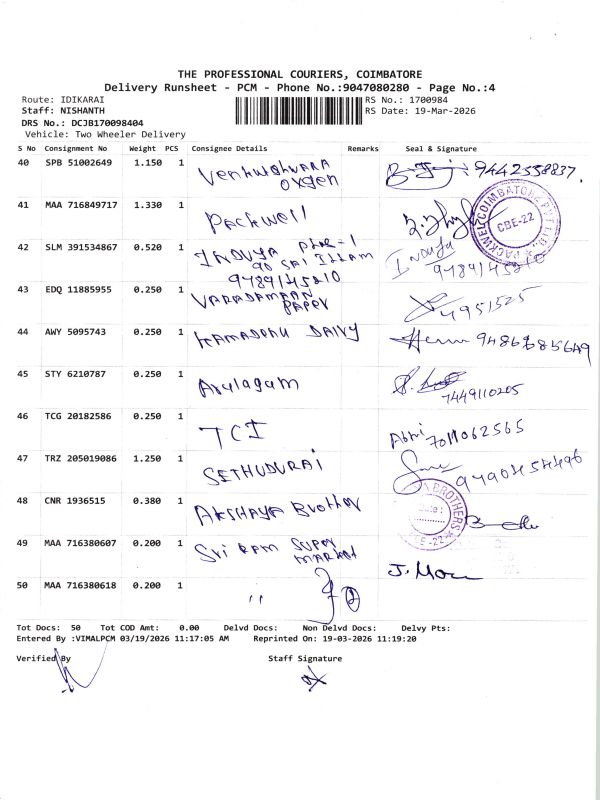 THE PROFESSIONAL COURIERS, COIMBATORE
Delivery Runsheet - PCM - Phone No.:9047080280 - Page No.:4
Route: IDIKARAI RS No.: 1700984
Staff: NISHANTH RS Date: 19-Mar-2026
DRS No.: DCJB170098404
Vehicle: Two Wheeler Delivery
S No Consignment No Weight PCS Consignee Details Remarks Seal & Signature
40 SPB 51002649 1.150 1 9442558837.
oxygen
41 MAA 716849717 1.330 1 Packwell
COIMBATORE CBE-22
42 SLM 391534867 0.520 1 INDUJA phase-1 Induja
90 SAI ILLAM 9789145210
9789145210
43 EDQ 11885955 0.250 1 VARADAMAAN 4951525
PAPER
44 AWY 5095743 0.250 1 KAMADHAU DAIVY
45 STY 6210787 0.250 1 Arulagam
7449110205
46 TCG 20182586 0.250 1 TCI Abhi 7011062565
47 TRZ 205019086 1.250 1 SETHUDURAI
48 CNR 1936515 0.380 1 AKSHAYA Brother
BROTHERS
49 MAA 716380607 0.200 1 Sri RAM SUPER
MARKET
50 MAA 716380618 0.200 1 "
Tot Docs: 50 Tot COD Amt: 0.00 Delvd Docs: Non Delvd Docs: Delvy Pts:
Entered By :VIMALPCM 03/19/2026 11:17:05 AM Reprinted On: 19-03-2026 11:19:20
Verified By Staff Signature